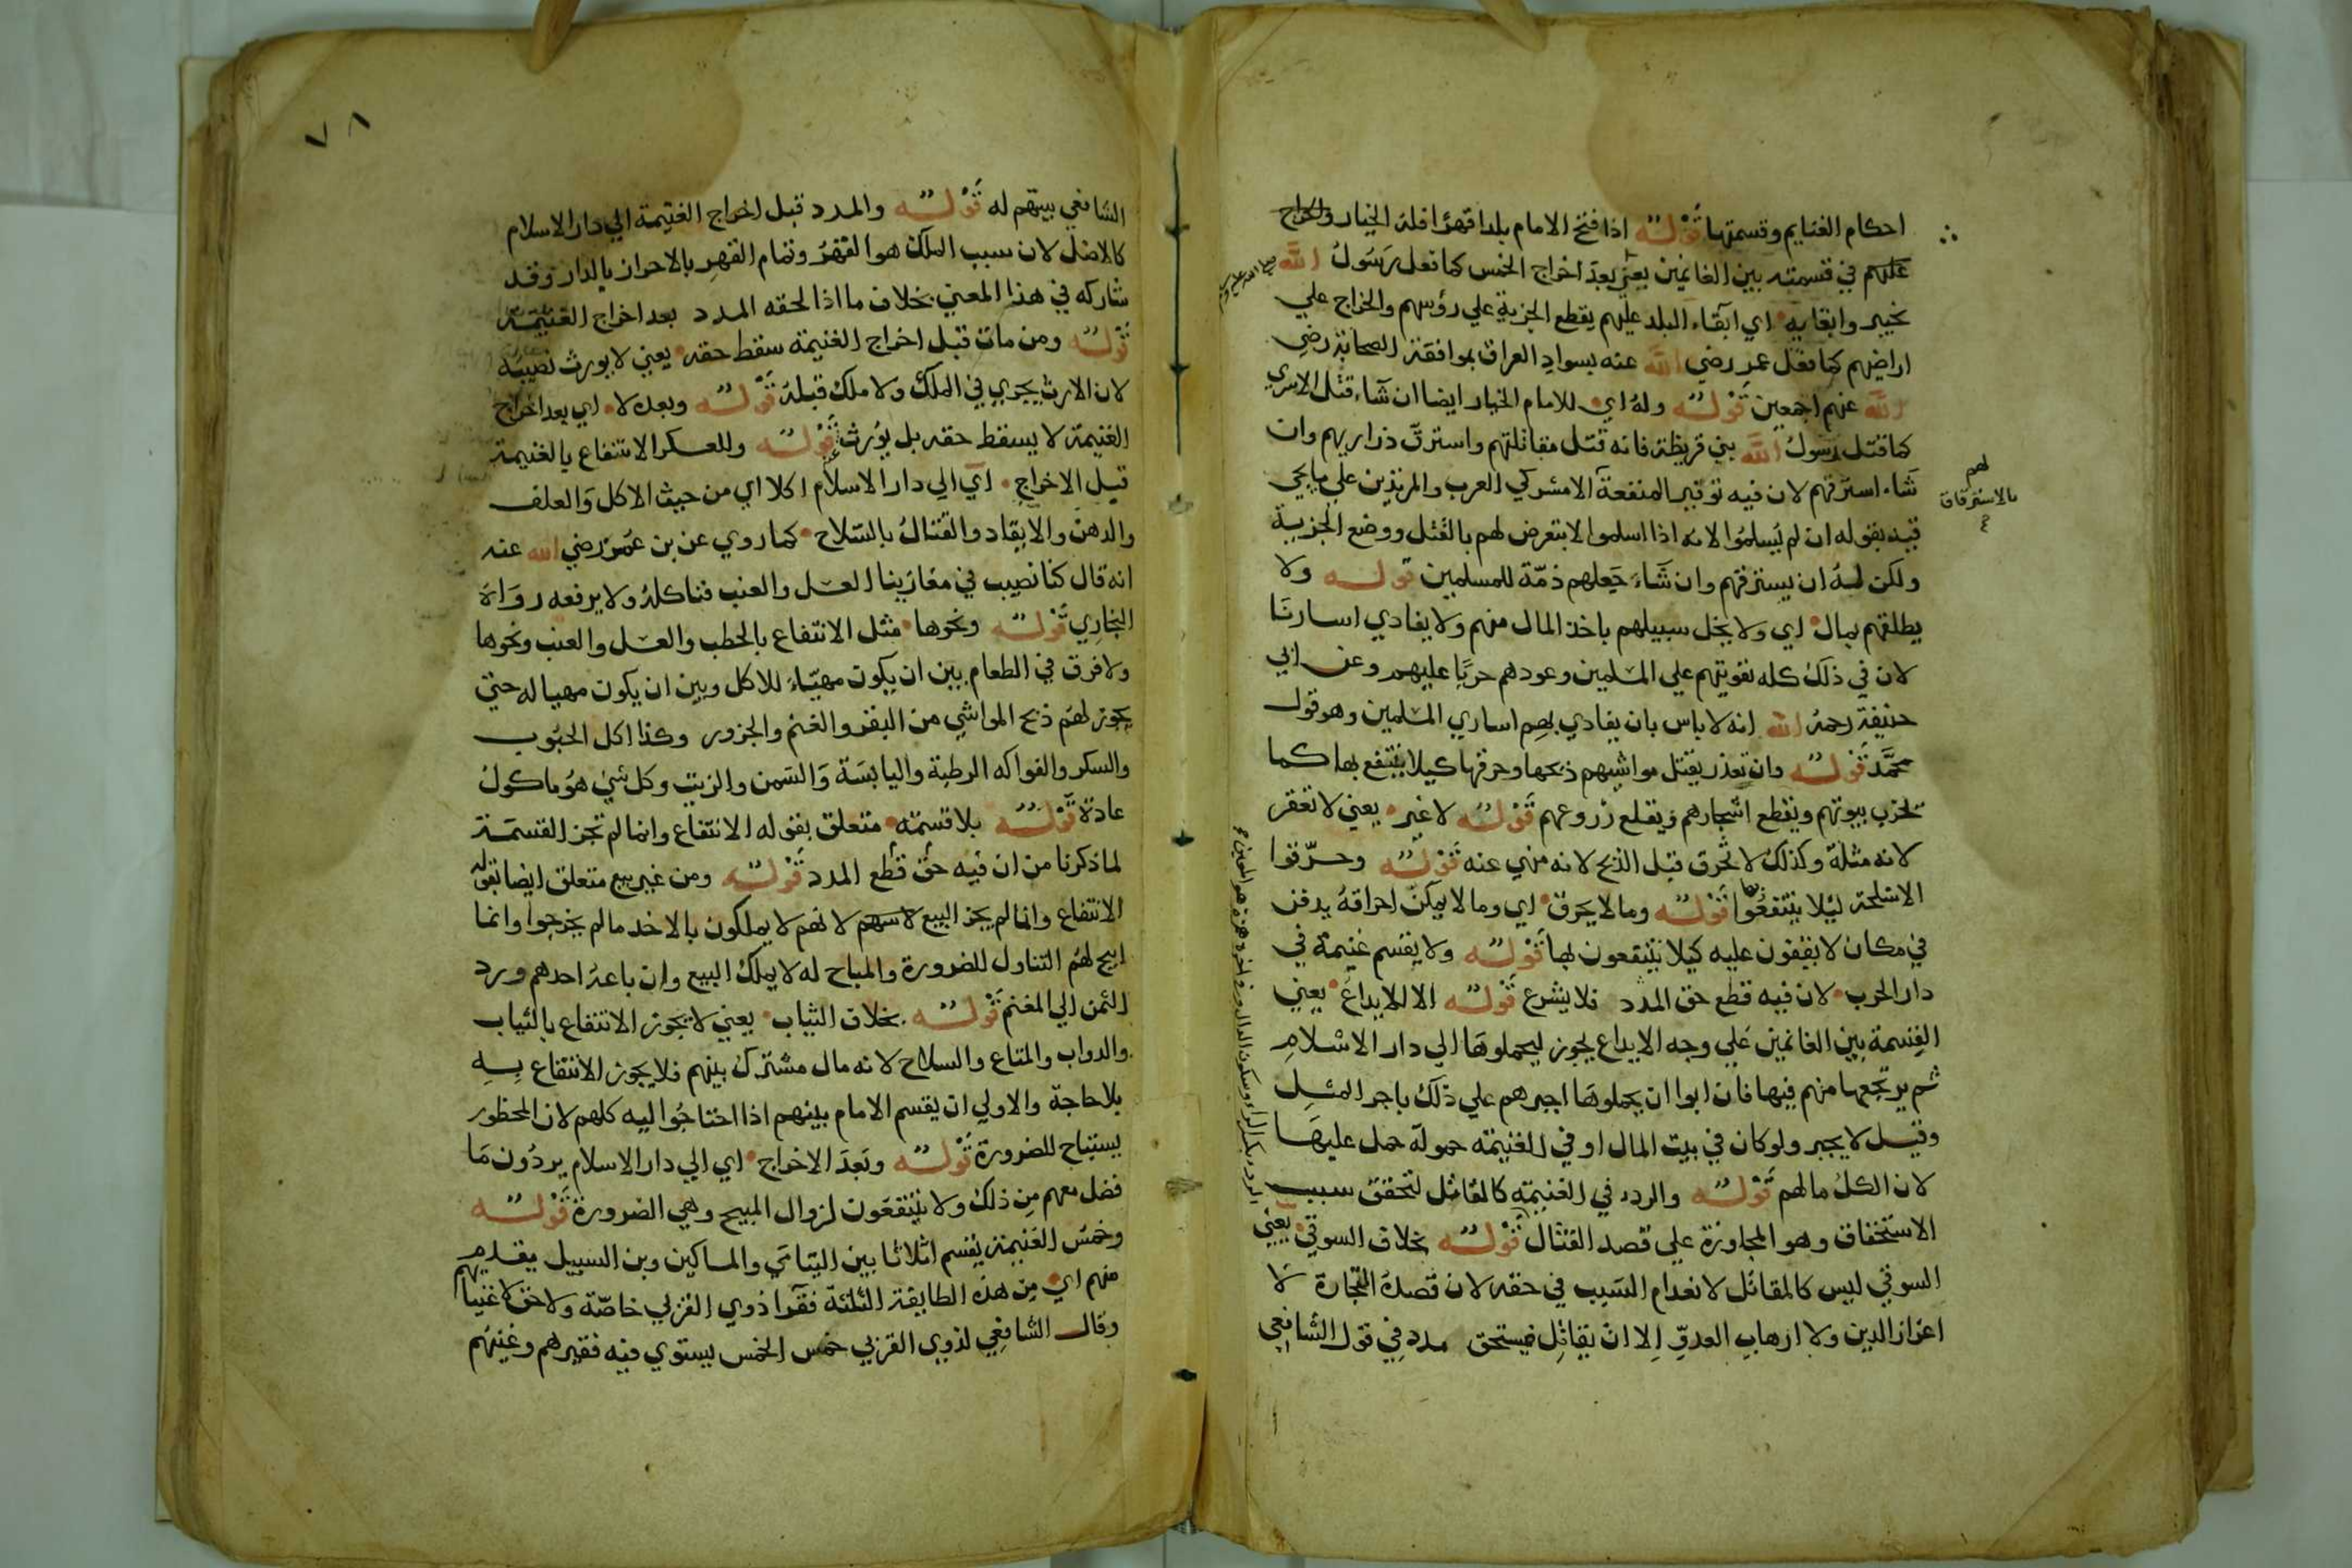 احكام الغنايم وقسمتها قوله اذا فتح الامام بلدا قهرا فله الخيار
في قسمته بين الغانمين يعني بعد اخراج الخمس كما فعل رسول الله صلى الله عليه وسلم
بخيبر وابقايه اي ابقاء البلد عليهم بقطع الجزية علي رؤسهم والخراج علي
اراضيهم كما فعل عمر رضي الله عنه بسواد العراق بموافقة الصحابة رضي
الله عنهم اجمعين قوله وله اي للامام الخيار ايضا ان شاء قتل الاسري
كما قتل رسول الله بني قريظة فانه قتل مقاتلتهم واسترق ذراريهم وان
شاء استرقهم لان فيه توفير المنفعة الا مشركي العرب والمرتدين علي ما يجي
قيد بقوله ان لم يسلموا لانه اذا اسلموا لا يتعرض لهم بالقتل ووضع الجزية
لهم
بالاسترقاق
ولكن له ان يسترقهم وان شاء جعلهم ذمة للمسلمين قوله ولا
يطلقهم بمال اي ولا يخل سبيلهم باخذ المال منهم ولا يفادي اسارنا
لان في ذلك كله تقويتهم علي المسلمين وعودهم حربا عليهم وعن ابي
حنيفة رحمه الله انه لا باس بان يفادي بهم اساري المسلمين وهو قول
محمد قوله وان تعذر بقتل مواشيهم ذبحها وحرقها كيلا ينتفع بها كما
تخرب بيوتهم ويقطع اشجارهم ويقلع زروعهم قوله لا غير يعني لا تعقر
لانه مثلة وكذلك لا تحرق قبل الذبح لانه منهي عنه قوله وحرقوا
الاسلحة ليلا ينتفعوا بها قوله وما لا يحرق اي وما لا يمكن احراقه يدفن
في مكان لا يقفون عليه كيلا ينتفعون بها قوله ولا يقسم غنيمة في
دار الحرب لان فيه قطع حق المدد فلا يشرع قوله الا للايداع يعني
القسمة بين الغانمين علي وجه الايداع يجوز ليحملوها الي دار الاسلام
ثم يرتجعها منهم فيها فان ابوا ان يحملوها اجبرهم علي ذلك باجر المثل
وقيل لا يجبر ولو كان في بيت المال او في الغنيمة حمولة حمل عليها
لان الكل مالهم قوله والردء في الغنيمة كالمقاتل لتحقق سبب
الاستحقاق وهو المجاوزة علي قصد القتال قوله بخلاف السوقي يعني
السوقي ليس كالمقاتل لانعدام السبب في حقه لان قصده التجارة لا
اعزاز الدين ولا ارهاب العدو الا ان يقاتل فيستحق مدد في قول الشافعي
٧٨
الشافعي يسهم له قوله والمدد قبل اخراج الغنيمة الي دار الاسلام
كالاصل لان سبب الملك هو القهر وتمام القهر بالاحراز بالدار وقد
شاركه في هذا المعني بخلاف ما اذا لحقه المدد بعد اخراج الغنيمة
قوله ومن مات قبل اخراج الغنيمة سقط حقه يعني لا يورث نصيبه
لان الارث يجري في الملك ولا ملك قبله قوله وبعده لا اي بعد اخراج
الغنيمة لا يسقط حقه بل يورث عنه قوله وللعسكر الانتفاع بالغنيمة
قبل الاخراج اي الي دار الاسلام اكلا اي من حيث الاكل والعلف
والدهن والايقاد والقتال بالسلاح كما روي عن بن عمر رضي الله عنه
انه قال كنا نصيب في مغازينا العسل والعنب فناكله ولا يرفعه رواه
البخاري قوله ونحوها مثل الانتفاع بالحطب والعسل والعنب ونحوها
ولا فرق في الطعام بين ان يكون مهيئا للاكل وبين ان يكون مهيا له حتي
يجوز لهم ذبح المواشي من البقر والغنم والجزور وكذا اكل الحبوب
والسكر والفواكه الرطبة واليابسة والسمن والزيت وكل شي هو ماكول
عادة قوله بلا قسمة متعلق بقوله الانتفاع وانما لم تجز القسمة
لما ذكرنا من ان فيه حق قطع المدد قوله ومن غير بيع متعلق ايضا بقوله
الانتفاع وانما لم يجز البيع لانهم لا يملكون بالاخذ ما لم يخرجوا وانما
ابيح لهم التناول للضرورة والمباح له لا يملك البيع وان باعه احدهم ورد
الثمن الي المغنم قوله بخلاف الثياب يعني لا يجوز الانتفاع بالثياب
والدواب والمتاع والسلاح لانه مال مشترك بينهم فلا يجوز الانتفاع به
بلا حاجة والاولي ان يقسم الامام بينهم اذا احتاجوا اليه كلهم لان المحظور
يستباح للضرورة قوله وبعد الاخراج اي الي دار الاسلام يردون ما
فضل معهم من ذلك ولا ينتفعون لزوال المبيح وهي الضرورة قوله
وخمس الغنيمة يقسم اثلاثا بين اليتامي والمساكين وبن السبيل يقدم
منهم اي من هذه الطايفة الثلثة فقرا ذوي القربي خاصة ولا حق لاغنيائهم
وقال الشافعي لذوي القربي خمس الخمس يستوي فيه فقيرهم وغنيهم